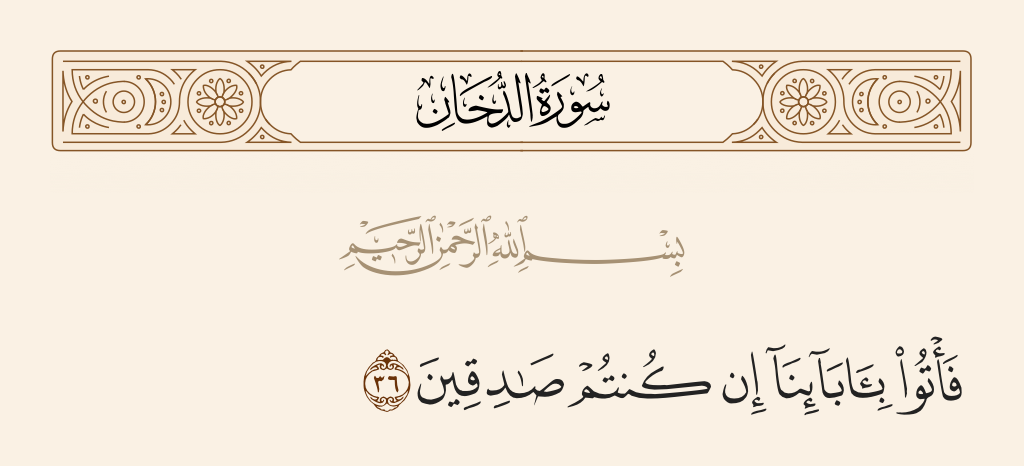 سُورَةُ الدُّخَانِ
بِسْمِ ٱللَّهِ ٱلرَّحْمَٰنِ ٱلرَّحِيمِ
فَأْتُوا۟ بِـَٔابَآئِنَآ إِن كُنتُمْ صَـٰدِقِينَ ٣٦